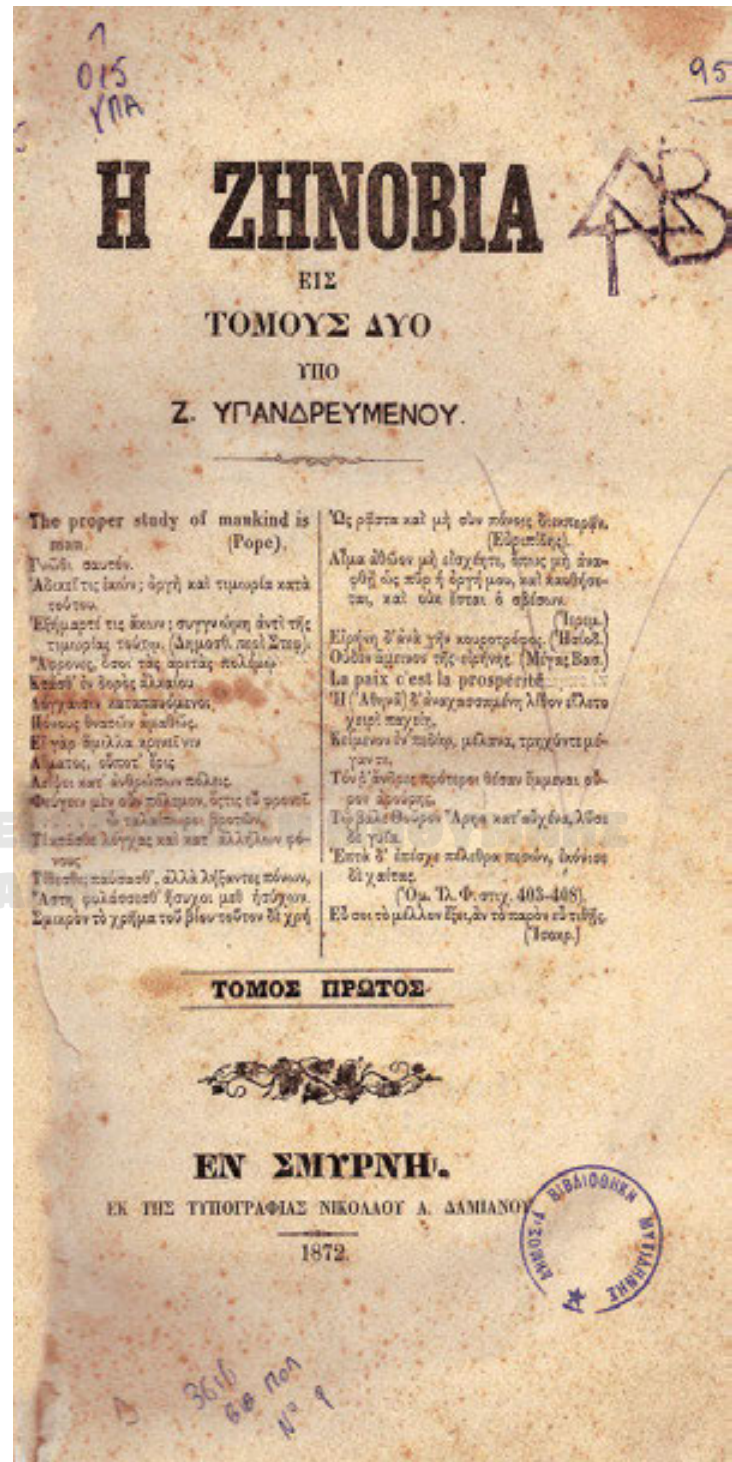 Λ
015
ΥΠΑ
95
Η ΖΗΝΟΒΙΑ
ΕΙΣ
ΤΟΜΟΥΣ ΔΥΟ
ΥΠΟ
Ζ. ΥΠΑΝΔΡΕΥΜΕΝΟΥ.
The proper study of mankind is
man. (Pope).
Γνῶθι σαυτόν.
Ἀδικεῖ τις ἑκών; ὀργὴ καὶ τιμωρία κατὰ
τούτου.
Ἐξήμαρτέ τις ἄκων; συγγνώμη ἀντὶ τῆς
τιμωρίας τούτῳ. (Δημοσθ. περὶ Στεφ).
Ἄφρονες, ὅσοι τὰς ἀρετὰς πολέμῳ
Κτᾶσθ' ἐν δορὸς ἀλκαίου
Λόγχαισιν καταπαυόμενοι
Πόνους θνατῶν ἀμαθῶς.
Εἰ γὰρ ἅμιλλα κρινεῖ νιν
Αἵματος, οὔποτ' ἔρις
Λείψει κατ' ἀνθρώπων πόλεις.
Φεύγειν μὲν οὖν πόλεμον, ὅςτις εὖ φρονεῖ.
. . . . . . ὦ ταλαίπωροι βροτῶν,
Τί κτᾶσθε λόγχας καὶ κατ' ἀλλήλων φό-
νους
Τίθεσθε; παύσασθ', ἀλλὰ λήξαντες πόνων,
Ἄστη φυλάσσεσθ' ἥσυχοι μεθ' ἡσύχων.
Σμικρὸν τὸ χρῆμα τοῦ βίου τοῦτον δὲ χρὴ
Ὡς ῥᾷστα καὶ μὴ σὺν πόνοις διεκπερᾷν.
(Εὐριπίδης).
Αἷμα ἀθῶον μὴ εἰσχέητε, ὅπως μὴ ἀνα-
φθῇ ὡς πῦρ ἡ ὀργή μου, καὶ ἐκκαυθήσε-
ται, καὶ οὐκ ἔσται ὁ σβέσων.
(Ἱερεμ.)
Εἰρήνη δ' ἀνὰ γῆν κουροτρόφος. (Ἡσίοδ.)
Οὐδὲν ἄμεινον τῆς εἰρήνης. (Μέγας Βασ.)
La paix c'est la prospérité
Ἡ (Ἀθηνᾶ) δ' ἀναχασσαμένη λίθον εἵλετο
χειρὶ παχείῃ,
Κείμενον ἐν πεδίῳ, μέλανα, τρηχύν τε μέ-
γαν τε,
Τόν ῥ' ἄνδρες πρότεροι θέσαν ἔμμεναι οὖ-
ρον ἀρούρης,
Τῷ βάλε Θοῦρον Ἄρηα κατ' αὐχένα, λῦσε
δὲ γυῖα.
Ἑπτὰ δ' ἐπέσχε πέλεθρα πεσών, ἐκόνισε
δὲ χαίτας.
(Ὁμ. Ἰλ. Φ. στιχ. 403-408).
Εὖ σοι τὸ μέλλον ἕξει, ἂν τὸ παρὸν εὖ τιθῇς.
(Ἰσοκρ.)
ΤΟΜΟΣ ΠΡΩΤΟΣ
ΕΝ ΣΜΥΡΝΗι.
ΕΚ ΤΗΣ ΤΥΠΟΓΡΑΦΙΑΣ ΝΙΚΟΛΑΟΥ Α. ΔΑΜΙΑΝΟΥ
1872.
ΔΗΜΟΣΙΑ ΒΙΒΛΙΟΘΗΚΗ ΜΥΤΙΛΗΝΗΣ
3616
ΠΟΛ
Νº 9